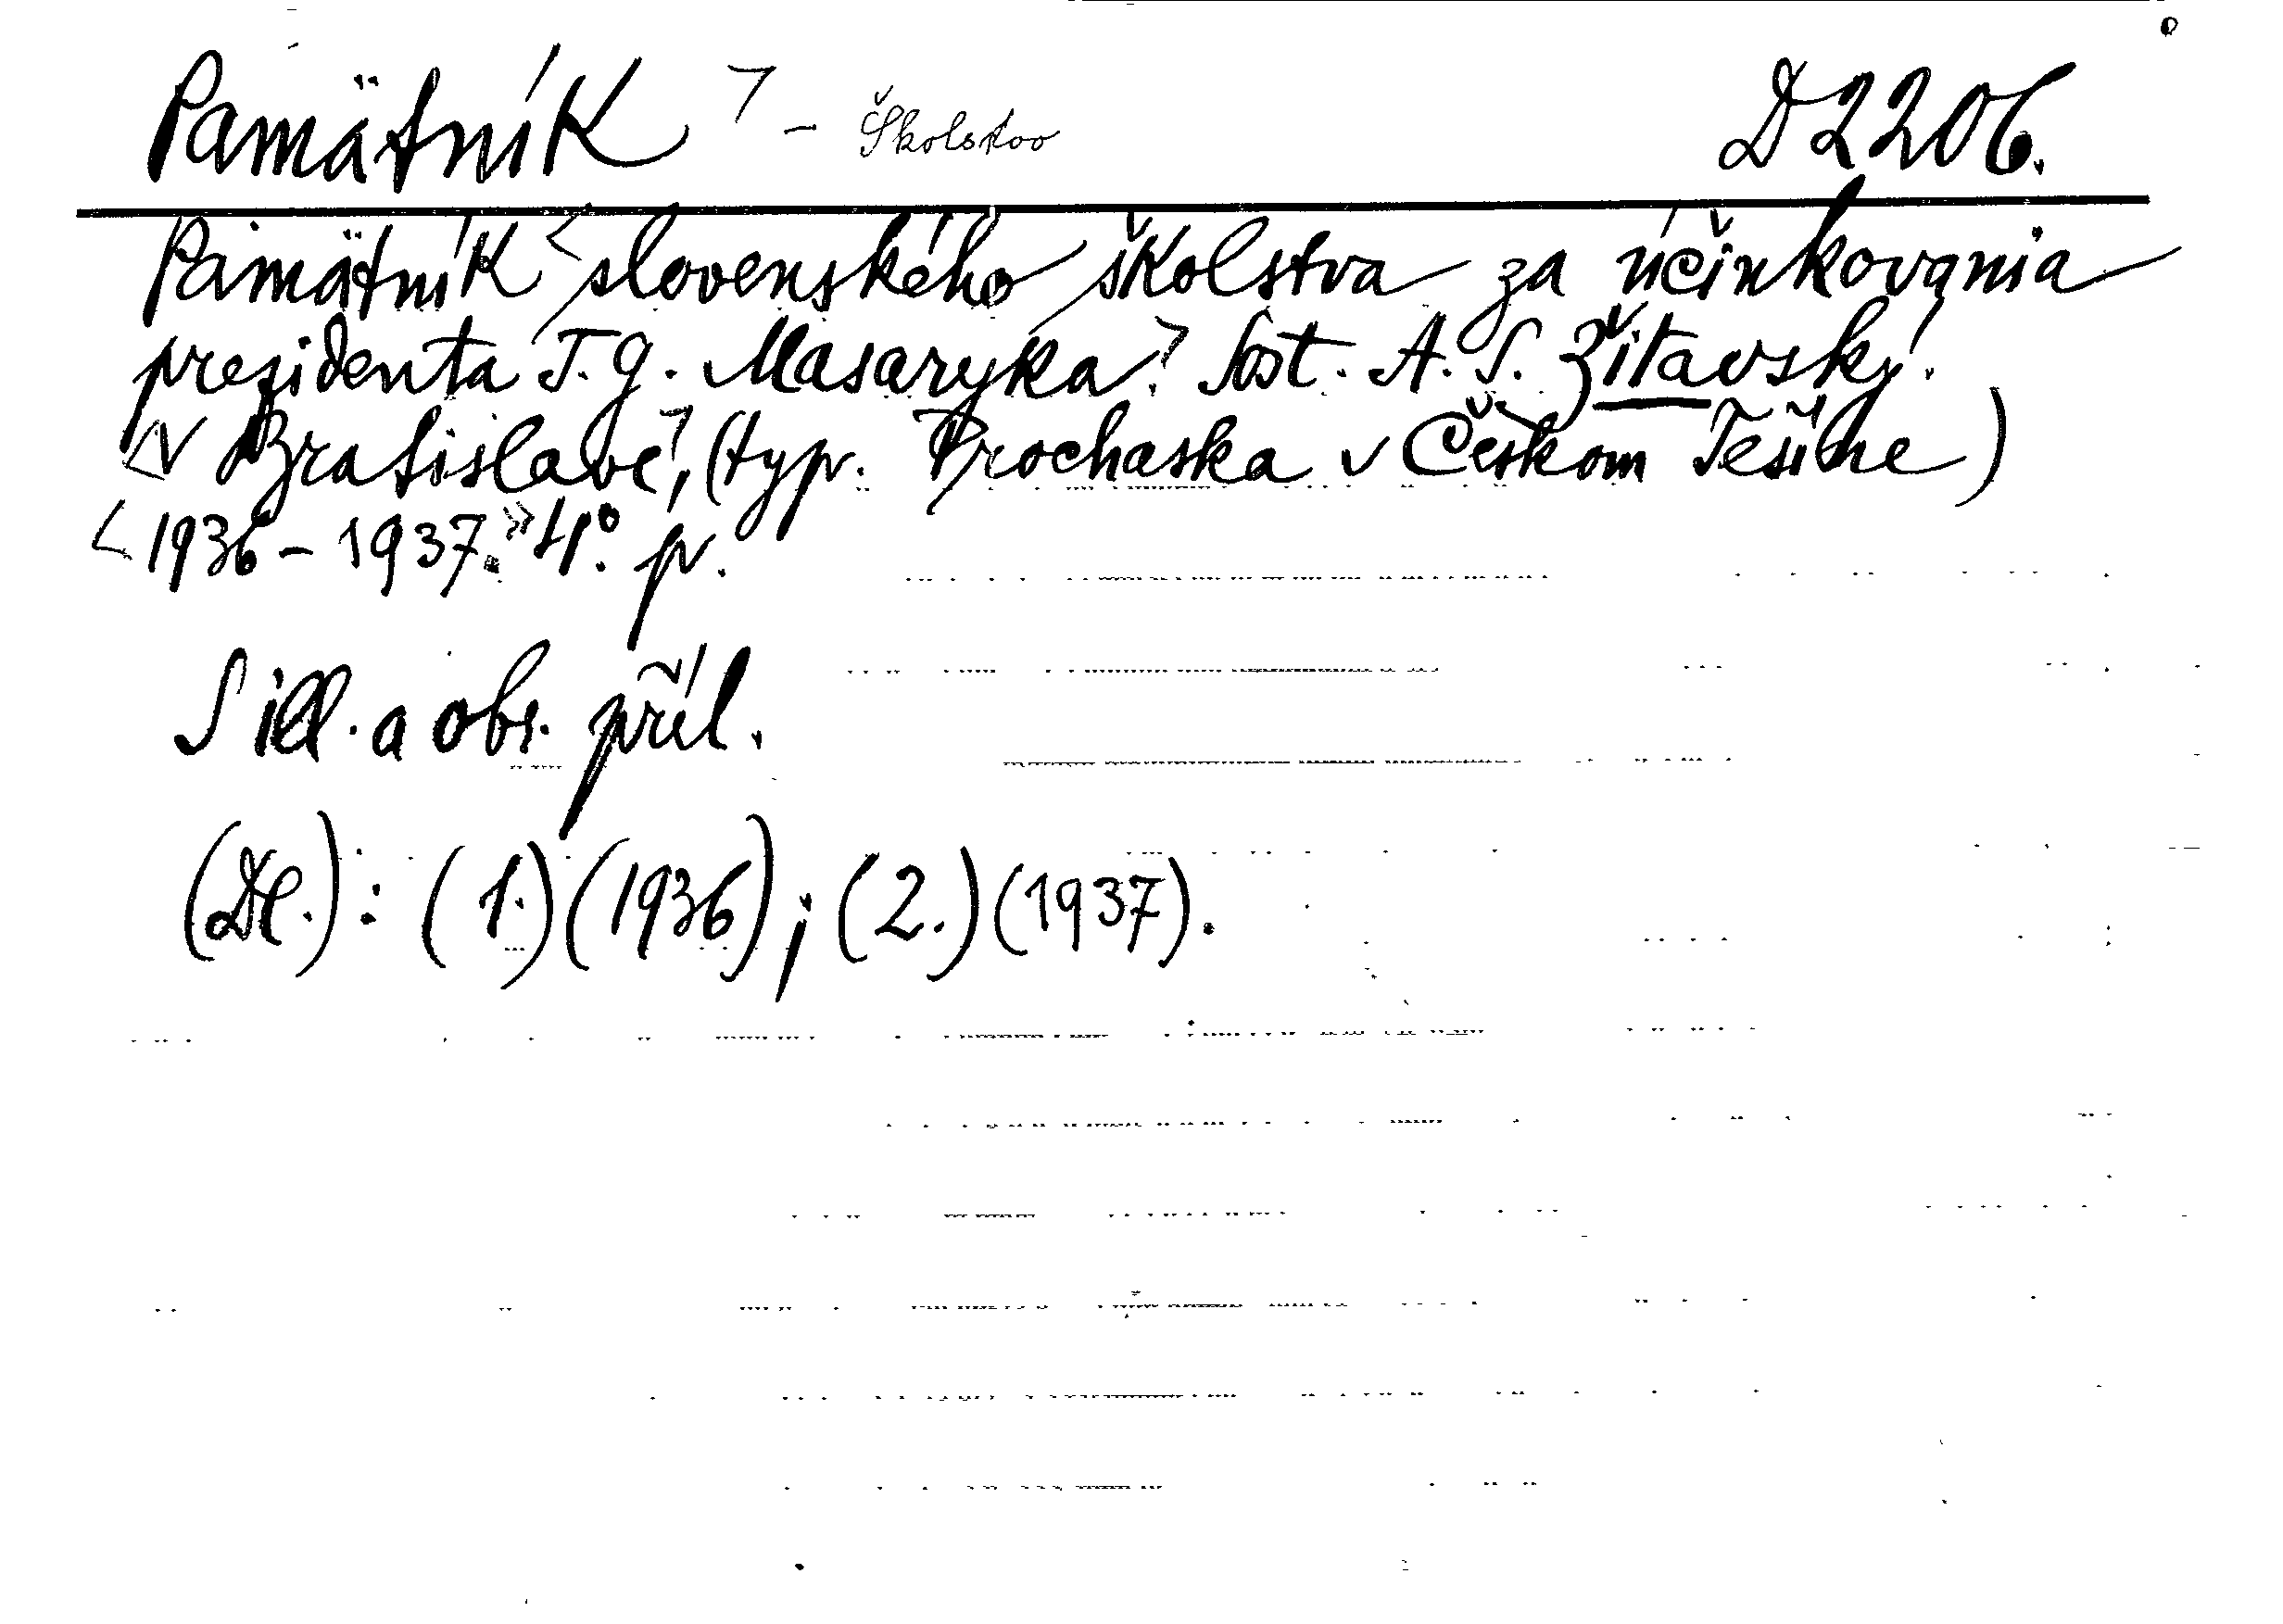 Pamätník > - Školstvo D 2206.
Pamätník <slovenského školstva za účinkovania
presidenta T. G. Masaryka.> Sost. A. S. Žitavský.
<V Bratislave>, (typ. Prochaska v Českom Těšíne)
<1936-1937.> 4°. p.
S ill. a obr. příl.
(Dl.): (1.) (1936); (2.) (1937).